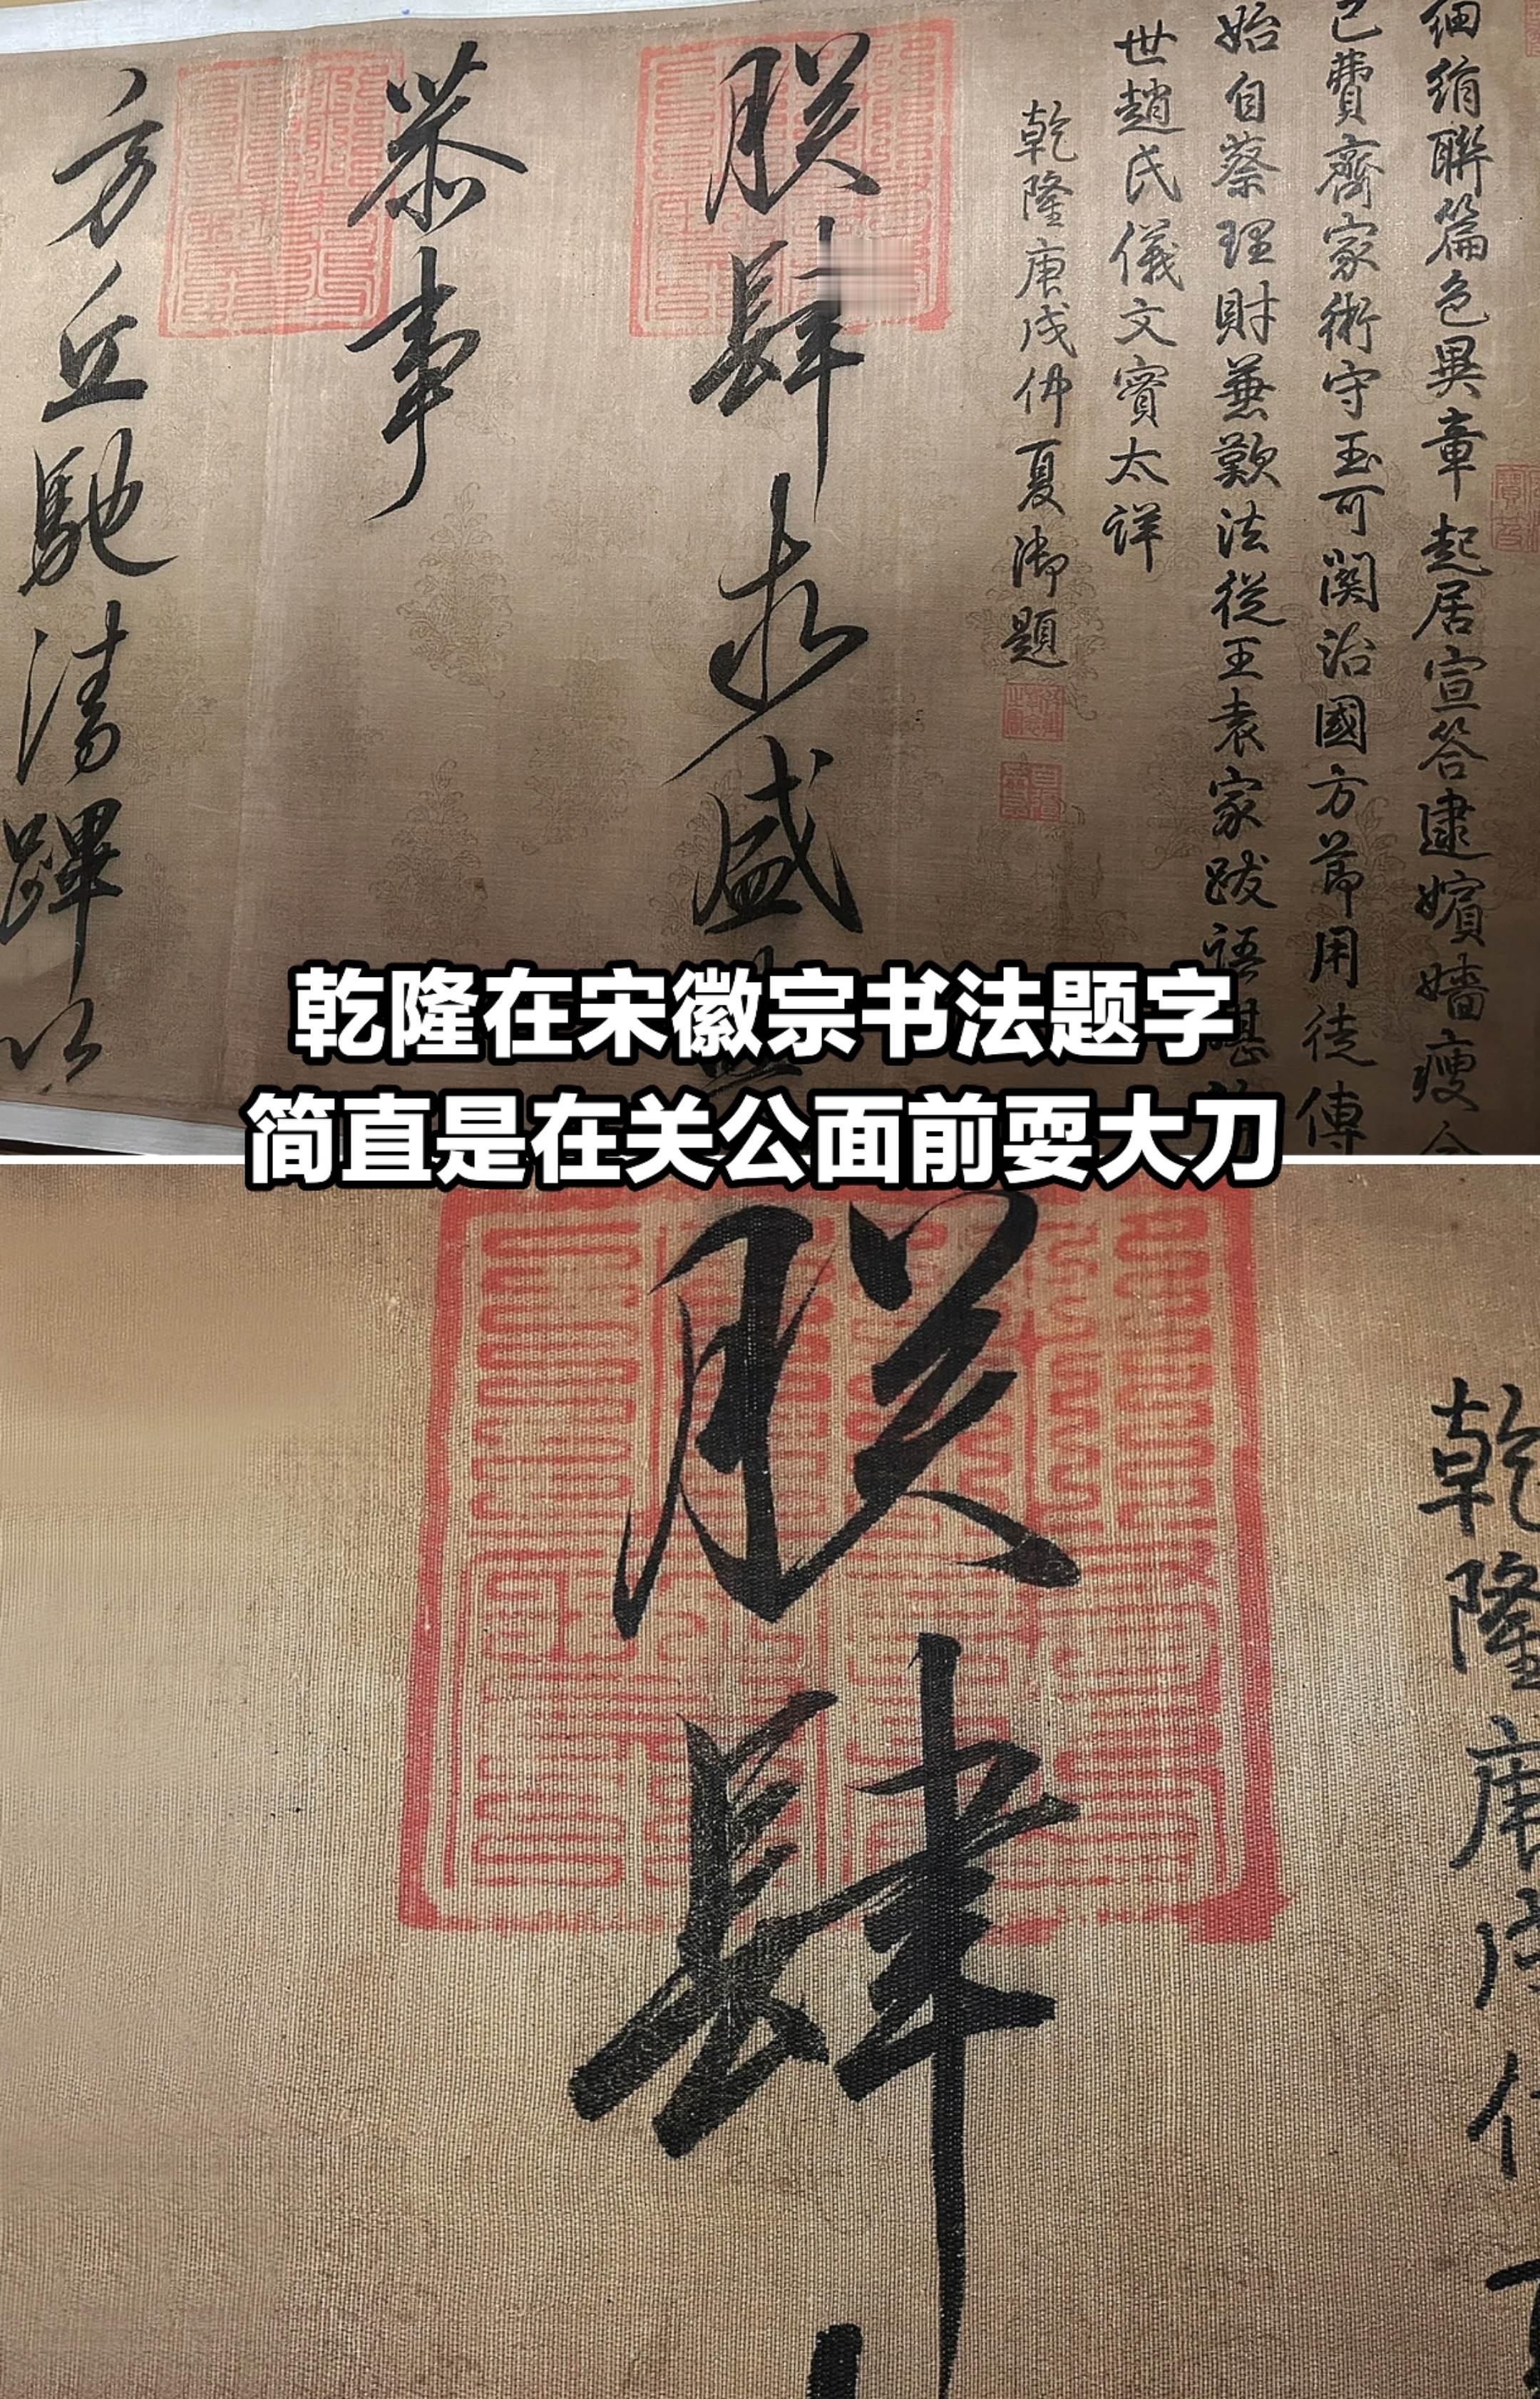 細絹聯篇色異章起居宣答逮嬪嬙瘦金
已費齊家術守玉可關治國方節用徒傳
始自蔡理財兼歎法從王袁家跋語堪
世趙氏儀文賓太詳
乾隆庚戌仲夏御題
朕肆求盛
恭事
方丘馳清蹕以
乾隆在宋徽宗书法题字
简直是在关公面前耍大刀
乾隆庚戌仲
朕肆